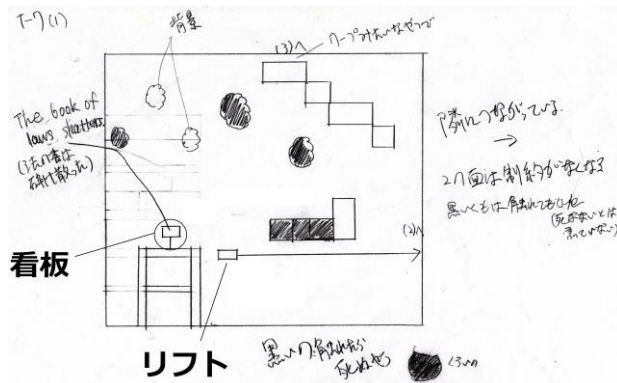 T-7(1)
背景
(3)へ
ワープみたいなやつで
The book of
laws shatters
(法の書は
砕け散った)
隣につながっている
→
この面は制約がなくなる
黒いくもは触れてもOK
(死なないとは
言っていない)
(2)へ
看板
リフト
黒いの触れたら
死ぬぜ
くろいの